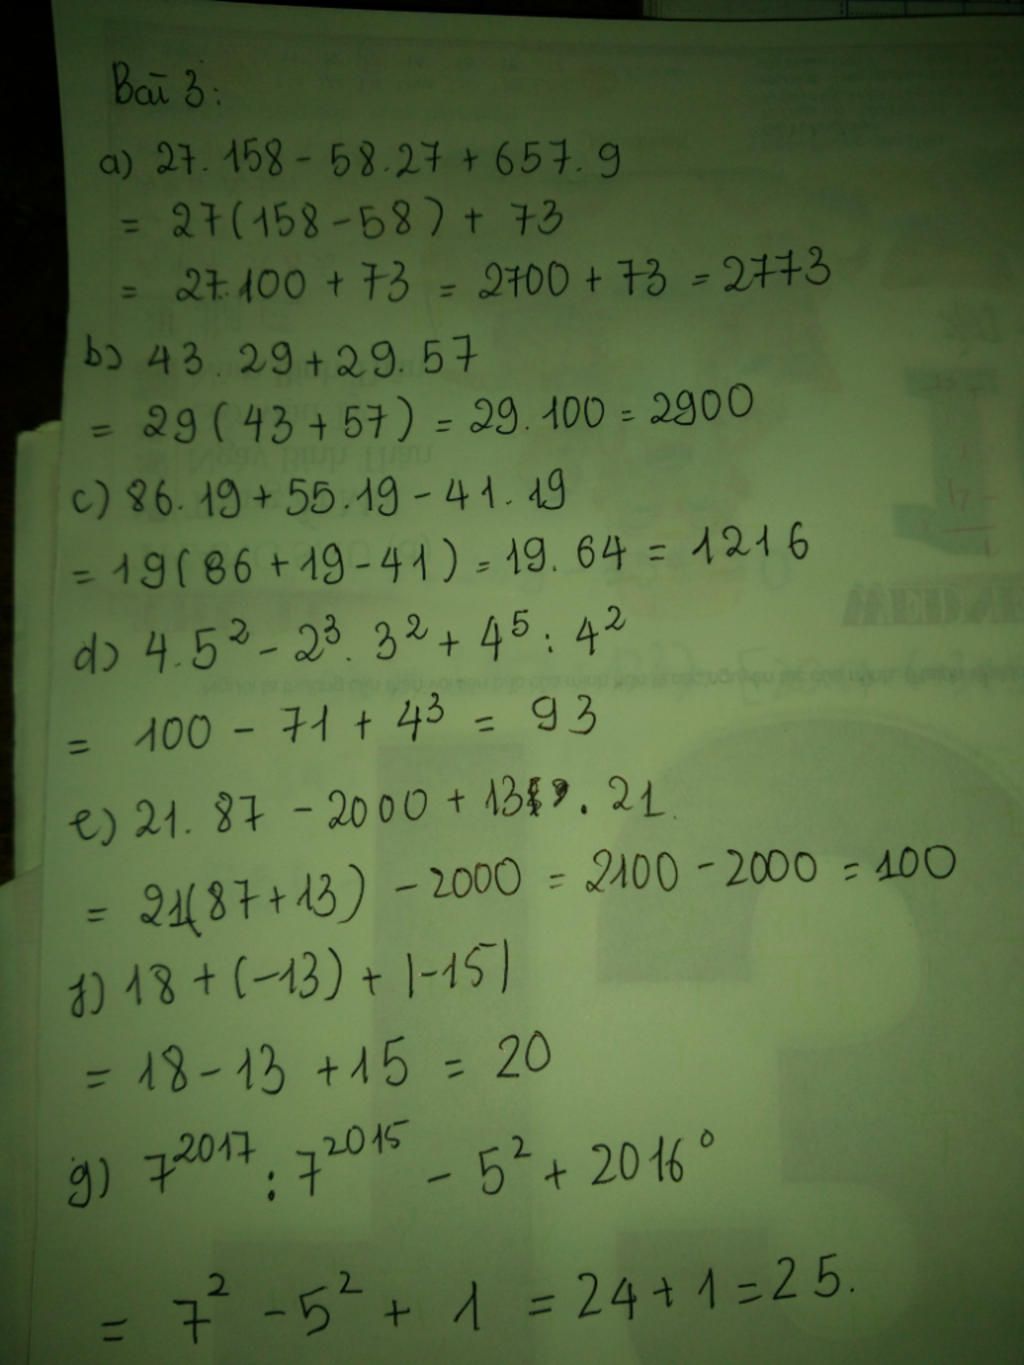 Bài 3:
a) 27.158 - 58.27 + 657.9
= 27(158-58) + 73
= 27.100 + 73 = 2700 + 73 = 2773
b) 43.29+29.57
= 29(43+57) = 29.100 = 2900
c) 86.19+55.19-41.19
= 19(86+19-41) = 19.64 = 1216
d) 4.5² - 2³.3² + 4⁵:4²
= 100 - 71 + 4³ = 93
e) 21.87 - 2000 + 13.21
= 21(87+13) - 2000 = 2100 - 2000 = 100
f) 18+(-13)+|-15|
= 18-13+15 = 20
g) 7²⁰¹⁷:7²⁰¹⁵ - 5² + 2016⁰
= 7² - 5² + 1 = 24+1=25.